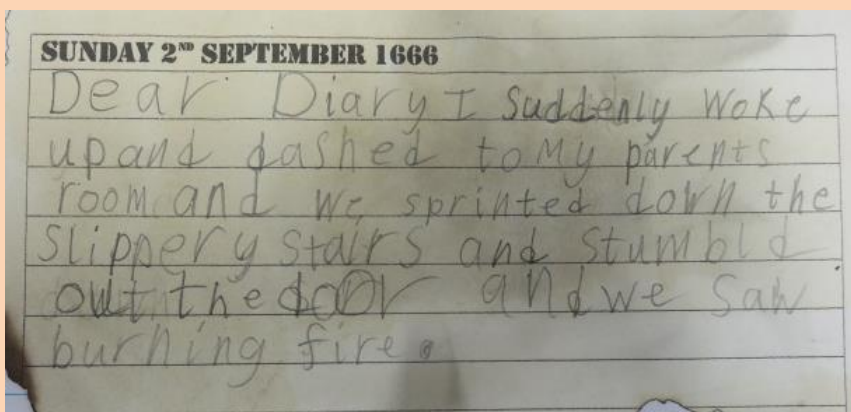 SUNDAY 2ND SEPTEMBER 1666
Dear Diary I Suddenly Woke
up and dashed to My parents
room and we sprinted down the
Slippery stairs and stumbld
out the door and we Saw
burning fire.